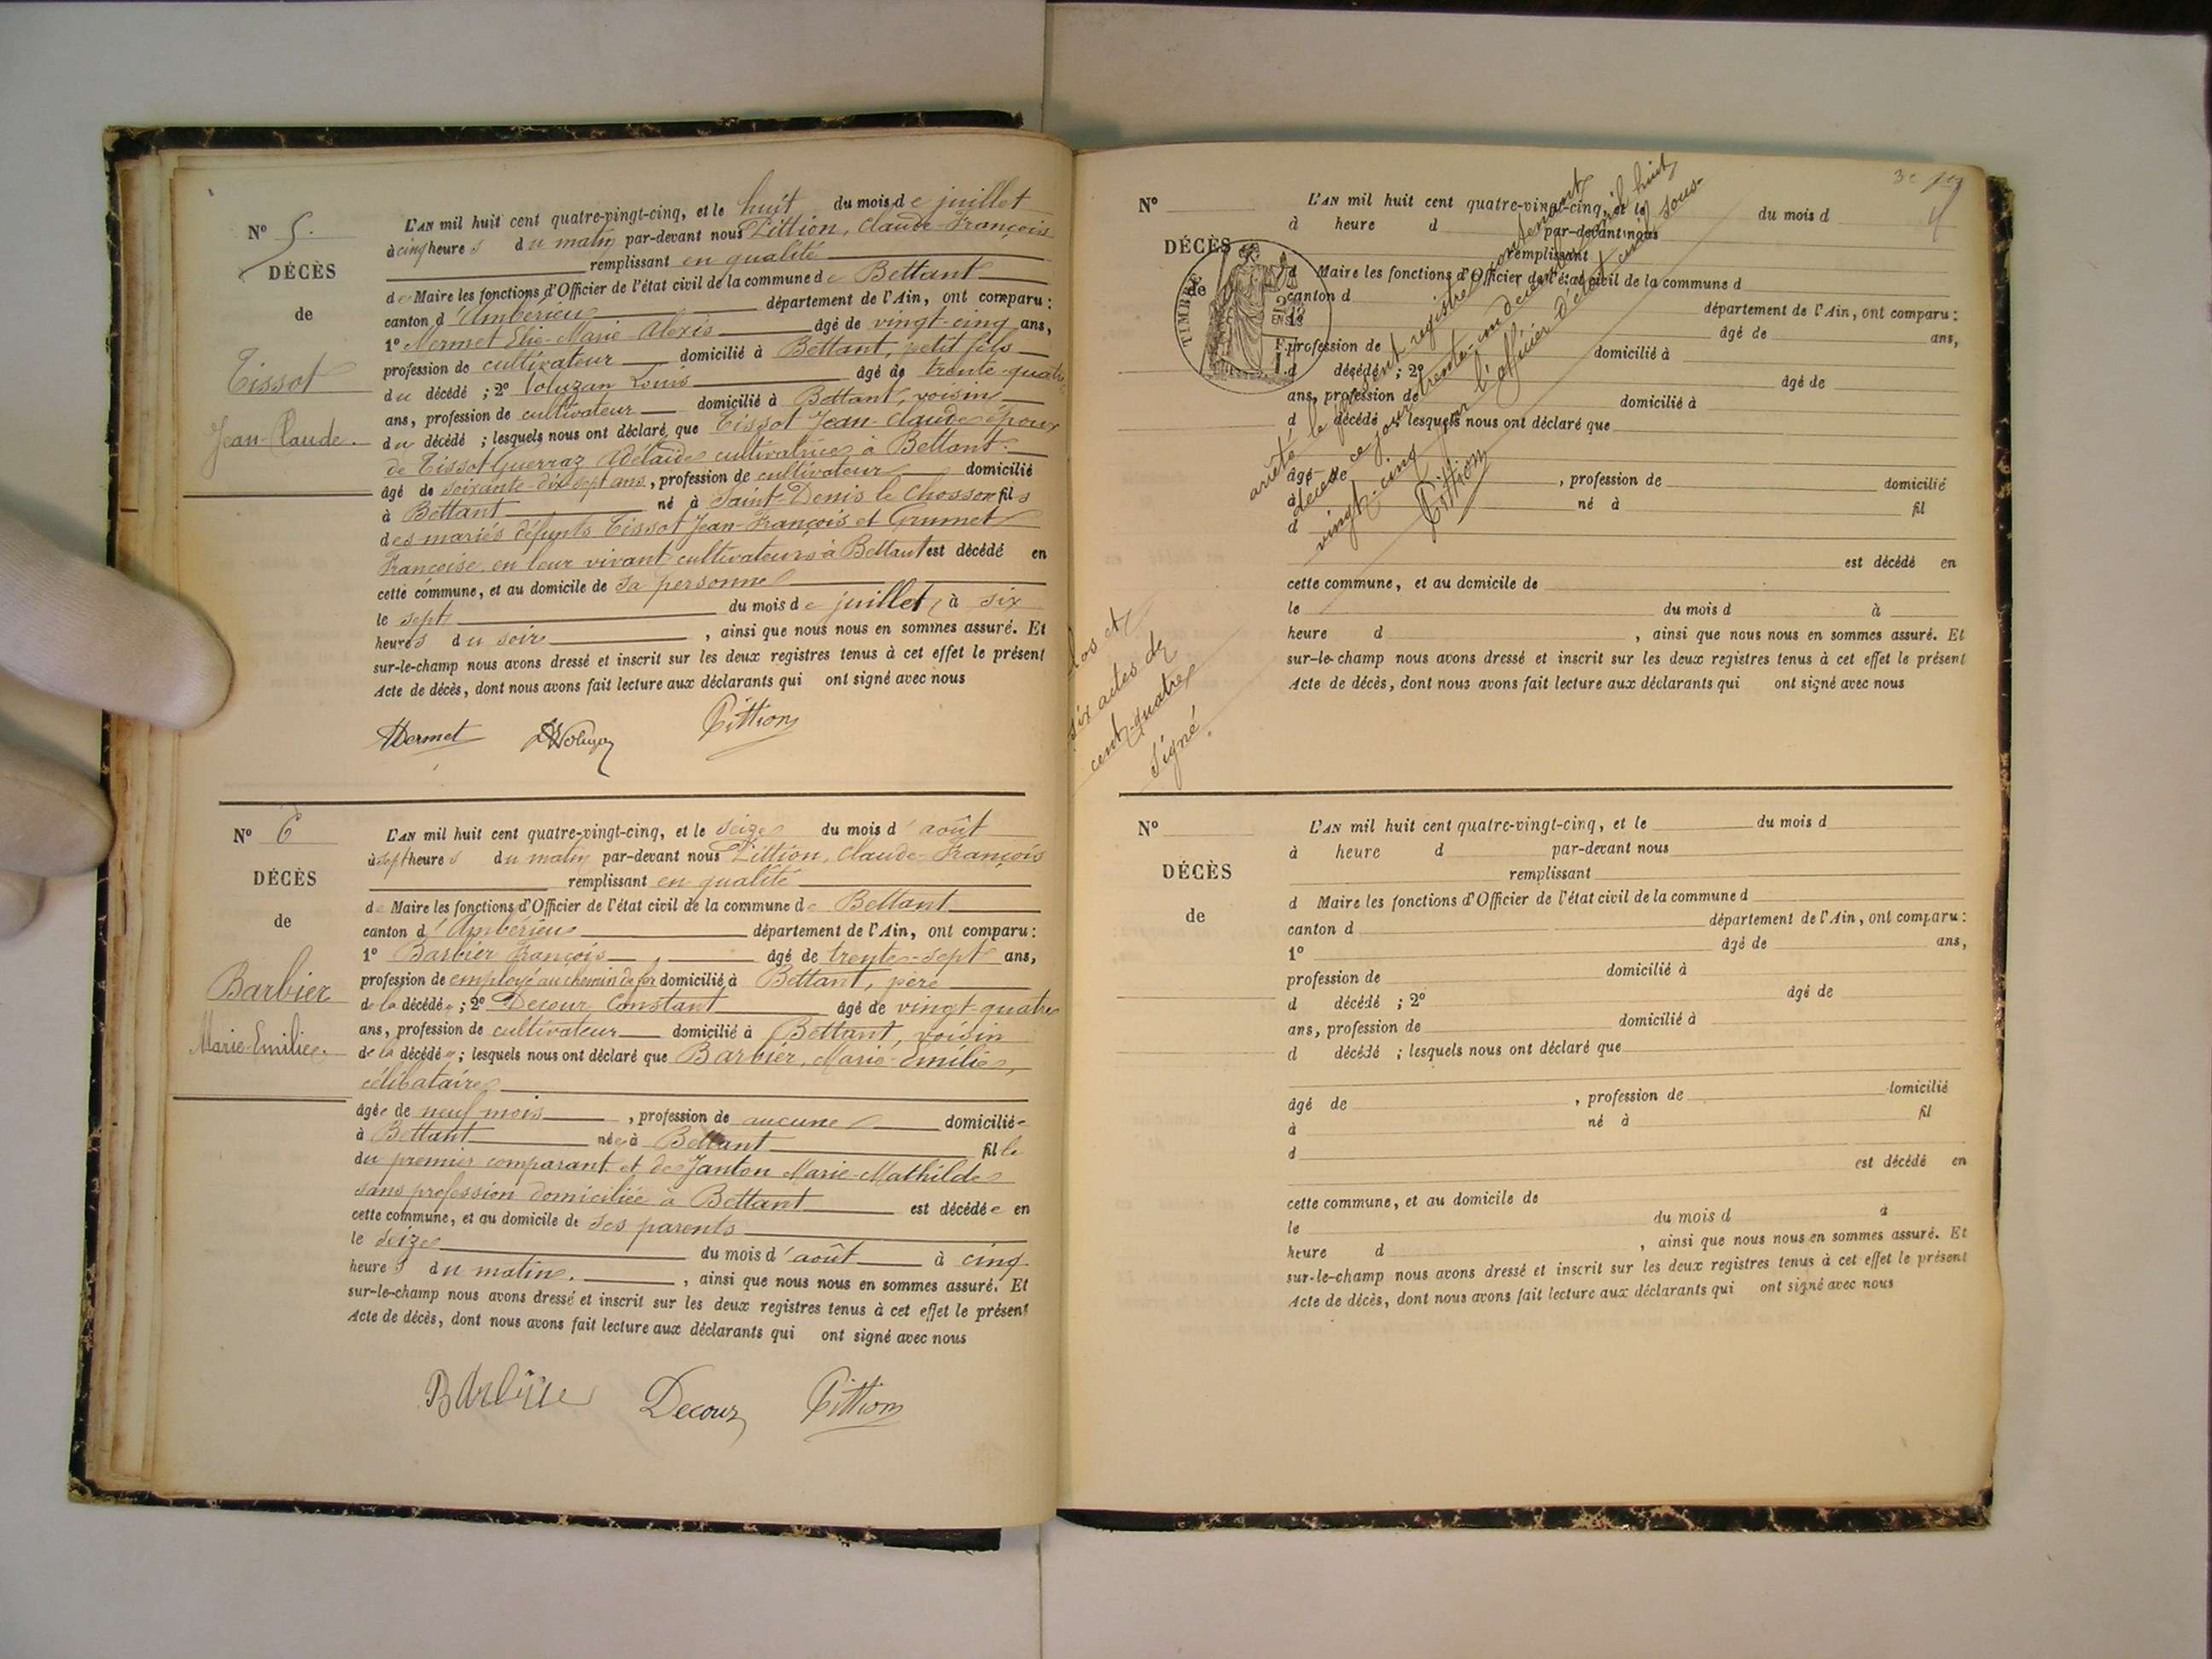 N° 5.
DÉCÈS
de
Tissot
Jean-Claude.
L'AN mil huit cent quatre-vingt-cinq, et le huit du mois de juillet
à cinq heures du matin par-devant nous Pittion, Claude-François
remplissant en qualité
de Maire les fonctions d'Officier de l'état civil de la commune de Bettant
canton d'Ambérieu département de l'Ain, ont comparu :
1° Mermet Elie-Marie Alexis âgé de vingt-cinq ans,
profession de cultivateur domicilié à Bettant, petit fils
du décédé ; 2° Voluzan Louis âgé de trente-quatre
ans, profession de cultivateur domicilié à Bettant, voisin
du décédé ; lesquels nous ont déclaré que Tissot Jean-Claude époux
de Tissot Guerraz Adélaïde cultivatrice à Bettant.
âgé de soixante-dix-sept ans, profession de cultivateur domicilié
à Bettant né à Saint-Denis le Chosson fils
des mariés défunts Tissot Jean-François et Grumet
Françoise en leur vivant cultivateurs à Bettant est décédé en
cette commune, et au domicile de sa personne
le sept du mois de juillet, à six
heures du soir, ainsi que nous nous en sommes assuré. Et
sur-le-champ nous avons dressé et inscrit sur les deux registres tenus à cet effet le présent
Acte de décès, dont nous avons fait lecture aux déclarants qui ont signé avec nous
Mermet Pittion
N° 6
DÉCÈS
de
Barbier
Marie-Emilie.
L'AN mil huit cent quatre-vingt-cinq, et le seize du mois d'août
à sept heures du matin par-devant nous Pittion, Claude-François
remplissant en qualité
de Maire les fonctions d'Officier de l'état civil de la commune de Bettant
canton d'Ambérieu département de l'Ain, ont comparu :
1° Barbier François, âgé de trente-sept ans,
profession de employé au chemin de fer domicilié à Bettant, père
de la décédée ; 2° Decour Constant âgé de vingt-quatre
ans, profession de cultivateur domicilié à Bettant, voisin
de la décédée ; lesquels nous ont déclaré que Barbier, Marie-Emilie,
célibataire
âgée de neuf mois, profession de aucune domiciliée
à Bettant née à Bettant fille
du premier comparant et de Janton Marie-Mathilde
sans profession domiciliée à Bettant est décédée en
cette commune, et au domicile de ses parents
le seize du mois d'août à cinq
heures du matin., ainsi que nous nous en sommes assuré. Et
sur-le-champ nous avons dressé et inscrit sur les deux registres tenus à cet effet le présent
Acte de décès, dont nous avons fait lecture aux déclarants qui ont signé avec nous
Barbier Decour Pittion
N°
DÉCÈS
de
TIMBRE
L'AN mil huit cent quatre-vingt-cinq, et le du mois d
à heure d par-devant nous
remplissant
d Maire les fonctions d'Officier de l'état civil de la commune d
canton d département de l'Ain, ont comparu :
âgé de ans,
profession de domicilié à
d décédé ; 2° âgé de
ans, profession de domicilié à
d décédé ; lesquels nous ont déclaré que
âgé de , profession de domicilié
à né à fil
d
est décédé en
cette commune, et au domicile de
le du mois d à
heure d , ainsi que nous nous en sommes assuré. Et
sur-le-champ nous avons dressé et inscrit sur les deux registres tenus à cet effet le présent
Acte de décès, dont nous avons fait lecture aux déclarants qui ont signé avec nous
Clos et arrêté le présent registre contenant
six actes de décès ce jour trente-un décembre mil huit
cent-quatre vingt-cinq par l'officier d'état civil sous-
signé. Pittion
N°
DÉCÈS
de
L'AN mil huit cent quatre-vingt-cinq, et le du mois d
à heure d par-devant nous
remplissant
d Maire les fonctions d'Officier de l'état civil de la commune d
canton d département de l'Ain, ont comparu :
1° âgé de ans,
profession de domicilié à
d décédé ; 2° âgé de
ans, profession de domicilié à
d décédé ; lesquels nous ont déclaré que
âgé de , profession de domicilié
à né à fil
d
est décédé en
cette commune, et au domicile de
le du mois d à
heure d , ainsi que nous nous en sommes assuré. Et
sur-le-champ nous avons dressé et inscrit sur les deux registres tenus à cet effet le présent
Acte de décès, dont nous avons fait lecture aux déclarants qui ont signé avec nous